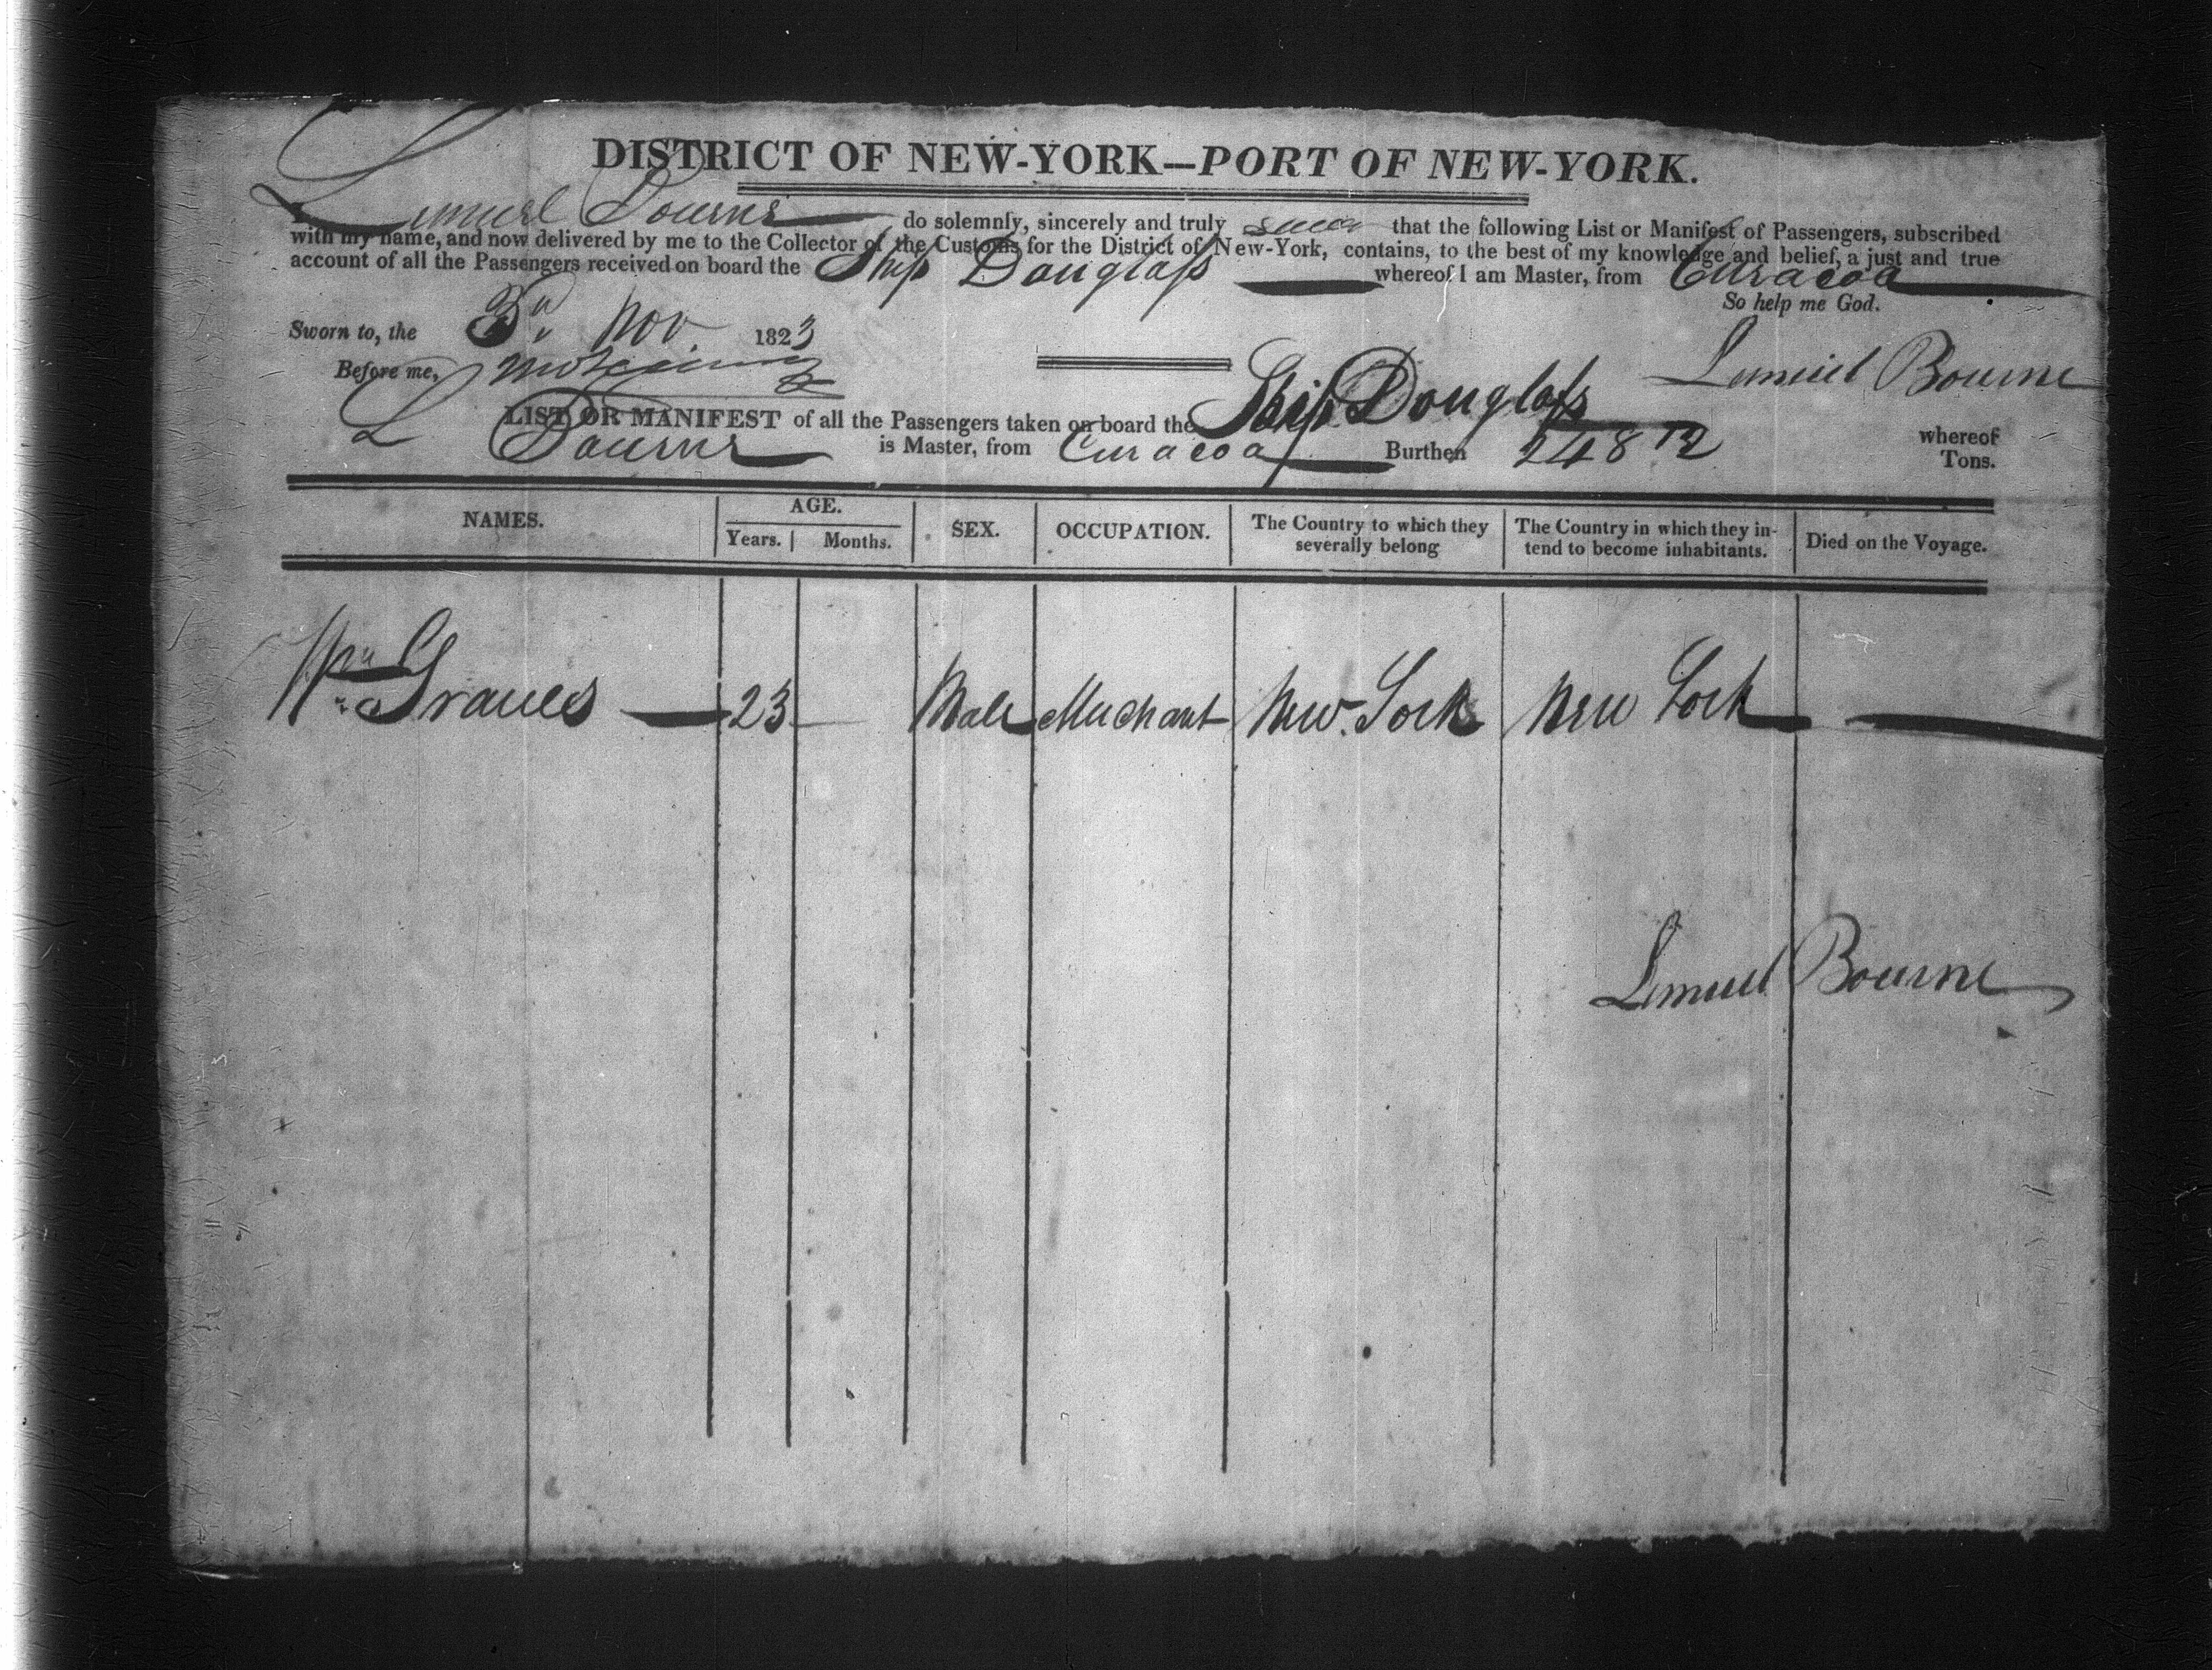 DISTRICT OF NEW-YORK—PORT OF NEW-YORK.
I Lemuel Bourne do solemnly, sincerely and truly swear that the following List or Manifest of Passengers, subscribed
with my name, and now delivered by me to the Collector of the Customs for the District of New-York, contains, to the best of my knowledge and belief, a just and true
account of all the Passengers received on board the Ship Douglass whereof I am Master, from Curacoa
So help me God.
Sworn to, the 3d Nov 1823
Before me,
Lemuel Bourne
LIST OR MANIFEST of all the Passengers taken on board the Ship Douglass whereof
L Bourne is Master, from Curacoa Burthen 248 Tons.
NAMES. AGE. SEX. OCCUPATION. The Country to which they severally belong The Country in which they intend to become inhabitants. Died on the Voyage.
Years. Months.
Wm Graves 23 Male Merchant New York New York
Lemuel Bourne